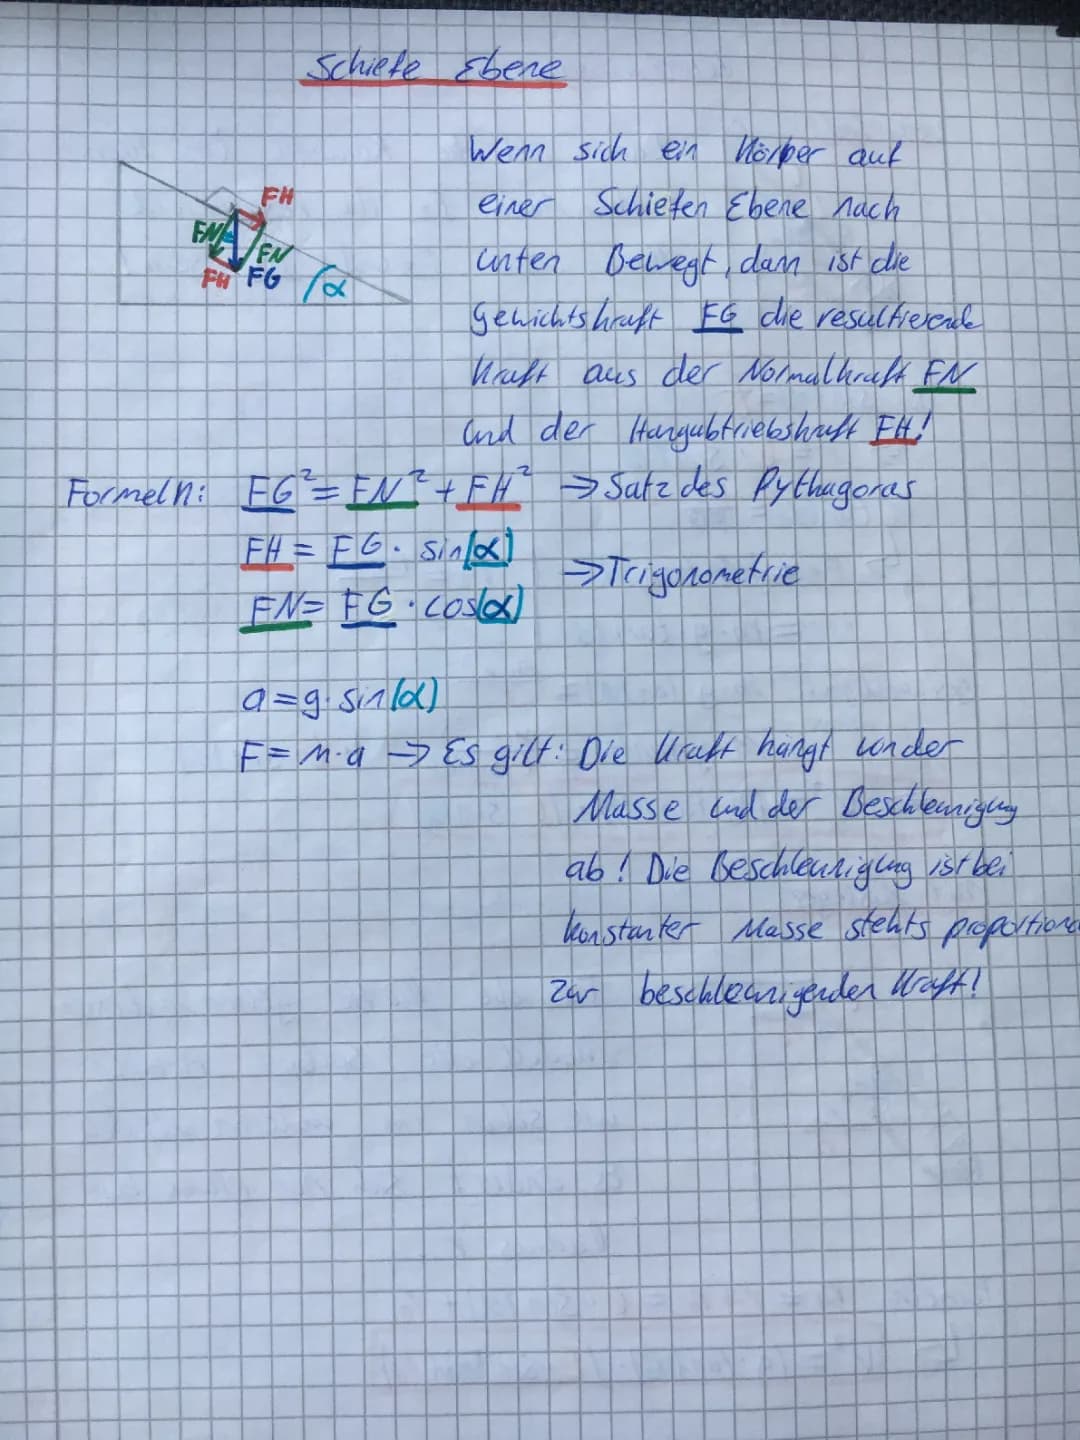 Schiefe Ebene
Wenn sich ein Körper auf
einer Schiefen Ebene nach
unten Bewegt, dann ist die
Gewichtskraft FG die resultierende
Kraft aus der Normalkraft FN
und der Hangabtriebskraft FH!
FH
FN
FN
FH FG
(α
Formeln: FG² = FN² + FH² → Satz des Pythagoras
FH = FG · sin(α)
→ Trigonometrie
FN = FG · cos(α)
a = g · sin(α)
F = m · a → Es gilt: Die Kraft hängt von der
Masse und der Beschleunigung
ab! Die Beschleunigung ist bei
konstanter Masse stehts proportional
zur beschleunigenden Kraft!